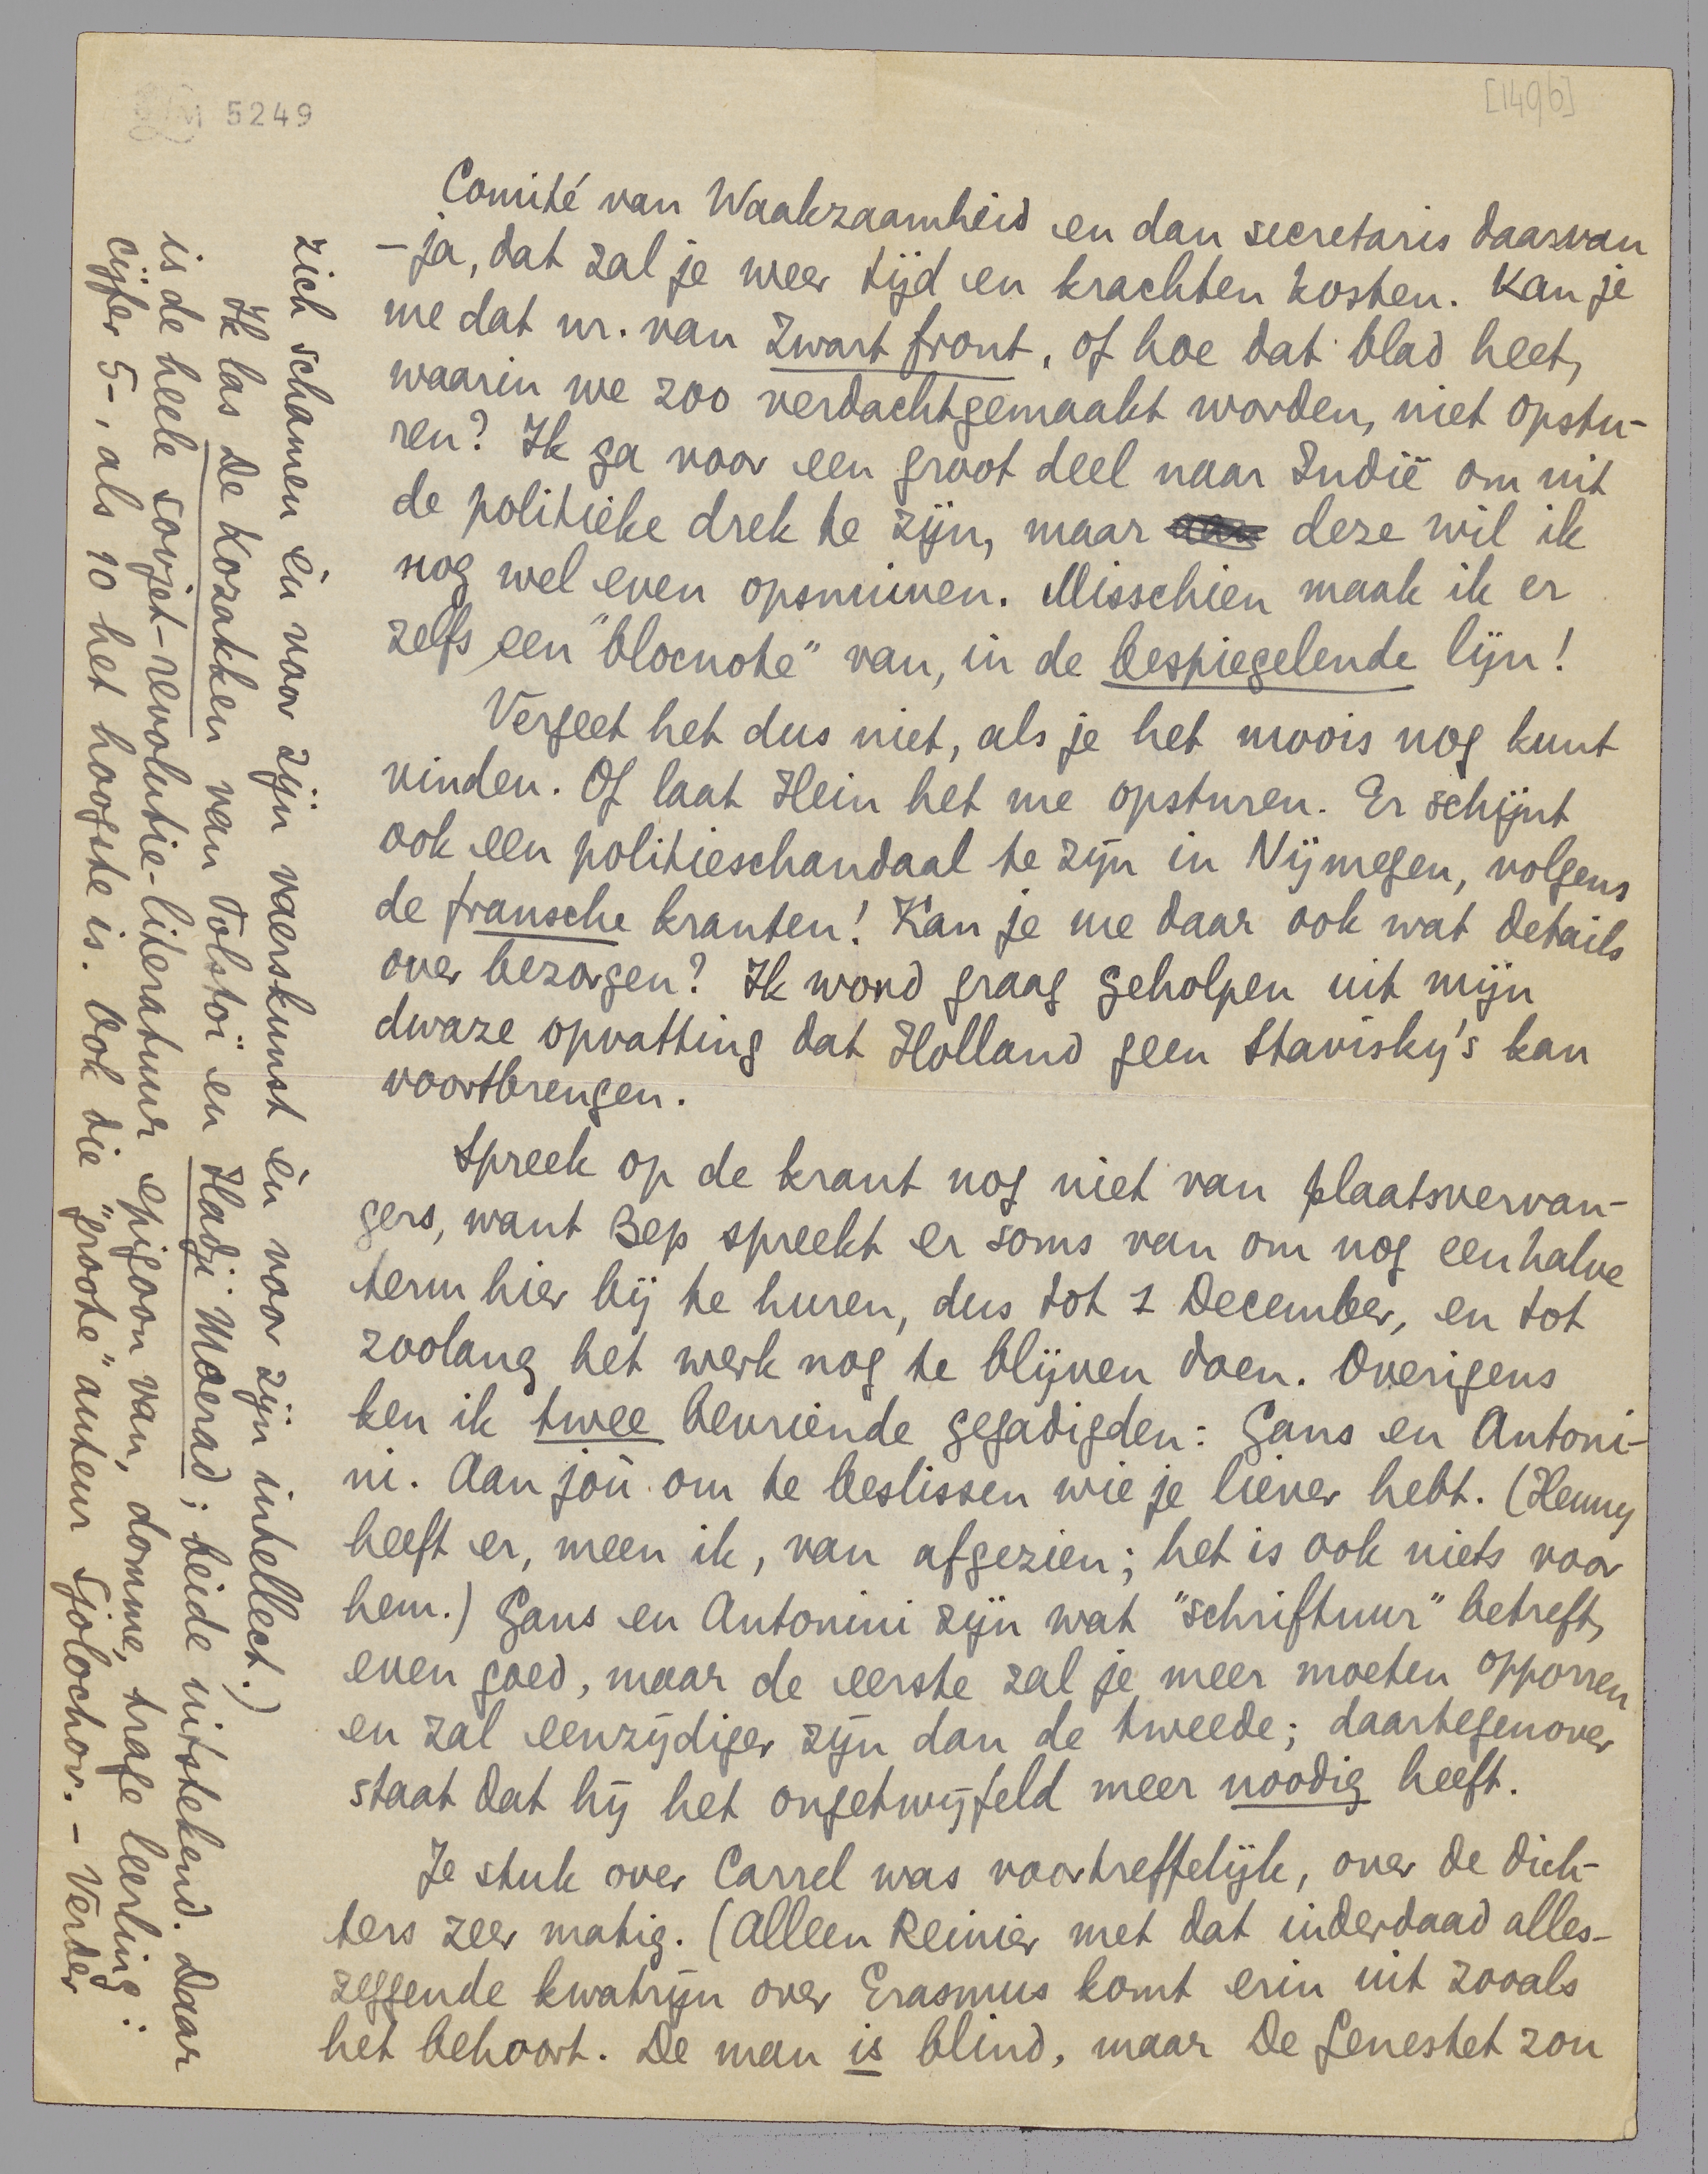 5249
[1496]
Comité van Waakzaamheid en dan secretaris daarvan
– ja, dat zal je weer tijd en krachten kosten. Kan je
me dat nr. van Zwart front, of hoe dat blad heet,
waarin we zoo verdachtgemaakt worden, niet opstu-
ren? Ik ga voor een groot deel naar Indië om uit
de politieke drek te zijn, maar deze wil ik
nog wel even opsnuiven. Misschien maak ik er
zelfs een "blocnote" van, in de bespiegelende lijn!
Vergeet het dus niet, als je het moois nog kunt
vinden. Of laat Hein het me opsturen. Er schijnt
ook een politieschandaal te zijn in Nijmegen, volgens
de fransche kranten! Kan je me daar ook wat details
over bezorgen? Ik word graag geholpen uit mijn
dwaze opvatting dat Holland geen Stavisky's kan
voortbrengen.
Spreek op de krant nog niet van plaatsvervan-
gers, want Bep spreekt er soms van om nog een halve
term hier bij te huren, dus tot 1 December, en tot
zoolang het werk nog te blijven doen. Overigens
ken ik twee bevriende gegadigden: Gans en Antoni-
ni. Aan joù om te beslissen wie je liever hebt. (Henny
heeft er, meen ik, van afgezien; het is ook niets voor
hem.) Gans en Antonini zijn wat "schriftuur" betreft,
even goed, maar de eerste zal je meer moeten opporren
en zal eenzijdiger zijn dan de tweede; daartegenover
staat dat hij het ongetwijfeld meer noodig heeft.
Je stuk over Carrel was voortreffelijk, over de dich-
ters zeer matig. (Alleen Reinier met dat inderdaad alles-
zeggende kwatrijn over Erasmus komt erin uit zooals
het behoort. De man is blind, maar De Genestet zou
zich schamen èn voor zijn vaerskunst èn voor zijn intellect.)
Ik las De Kozakken van Tolstoï en Hadji Moerad; beide uitstekend. Daar
is de heele sovjet-revolutie-literatuur epigoon van, domme, trage leerling:
cijfer 5-, als 10 het hoogste is. Ook die "groote" auteur Sjolochov. – Verder